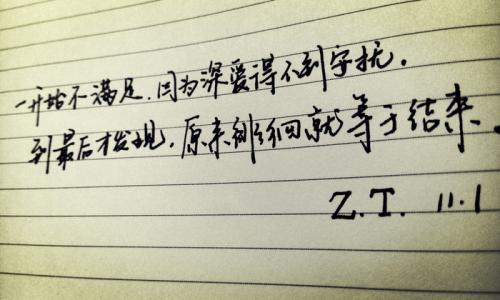 一开始不满足,因为深爱得不到守.
到最后才发现,原来徘徊就等于结束.
Z.T. 11.1